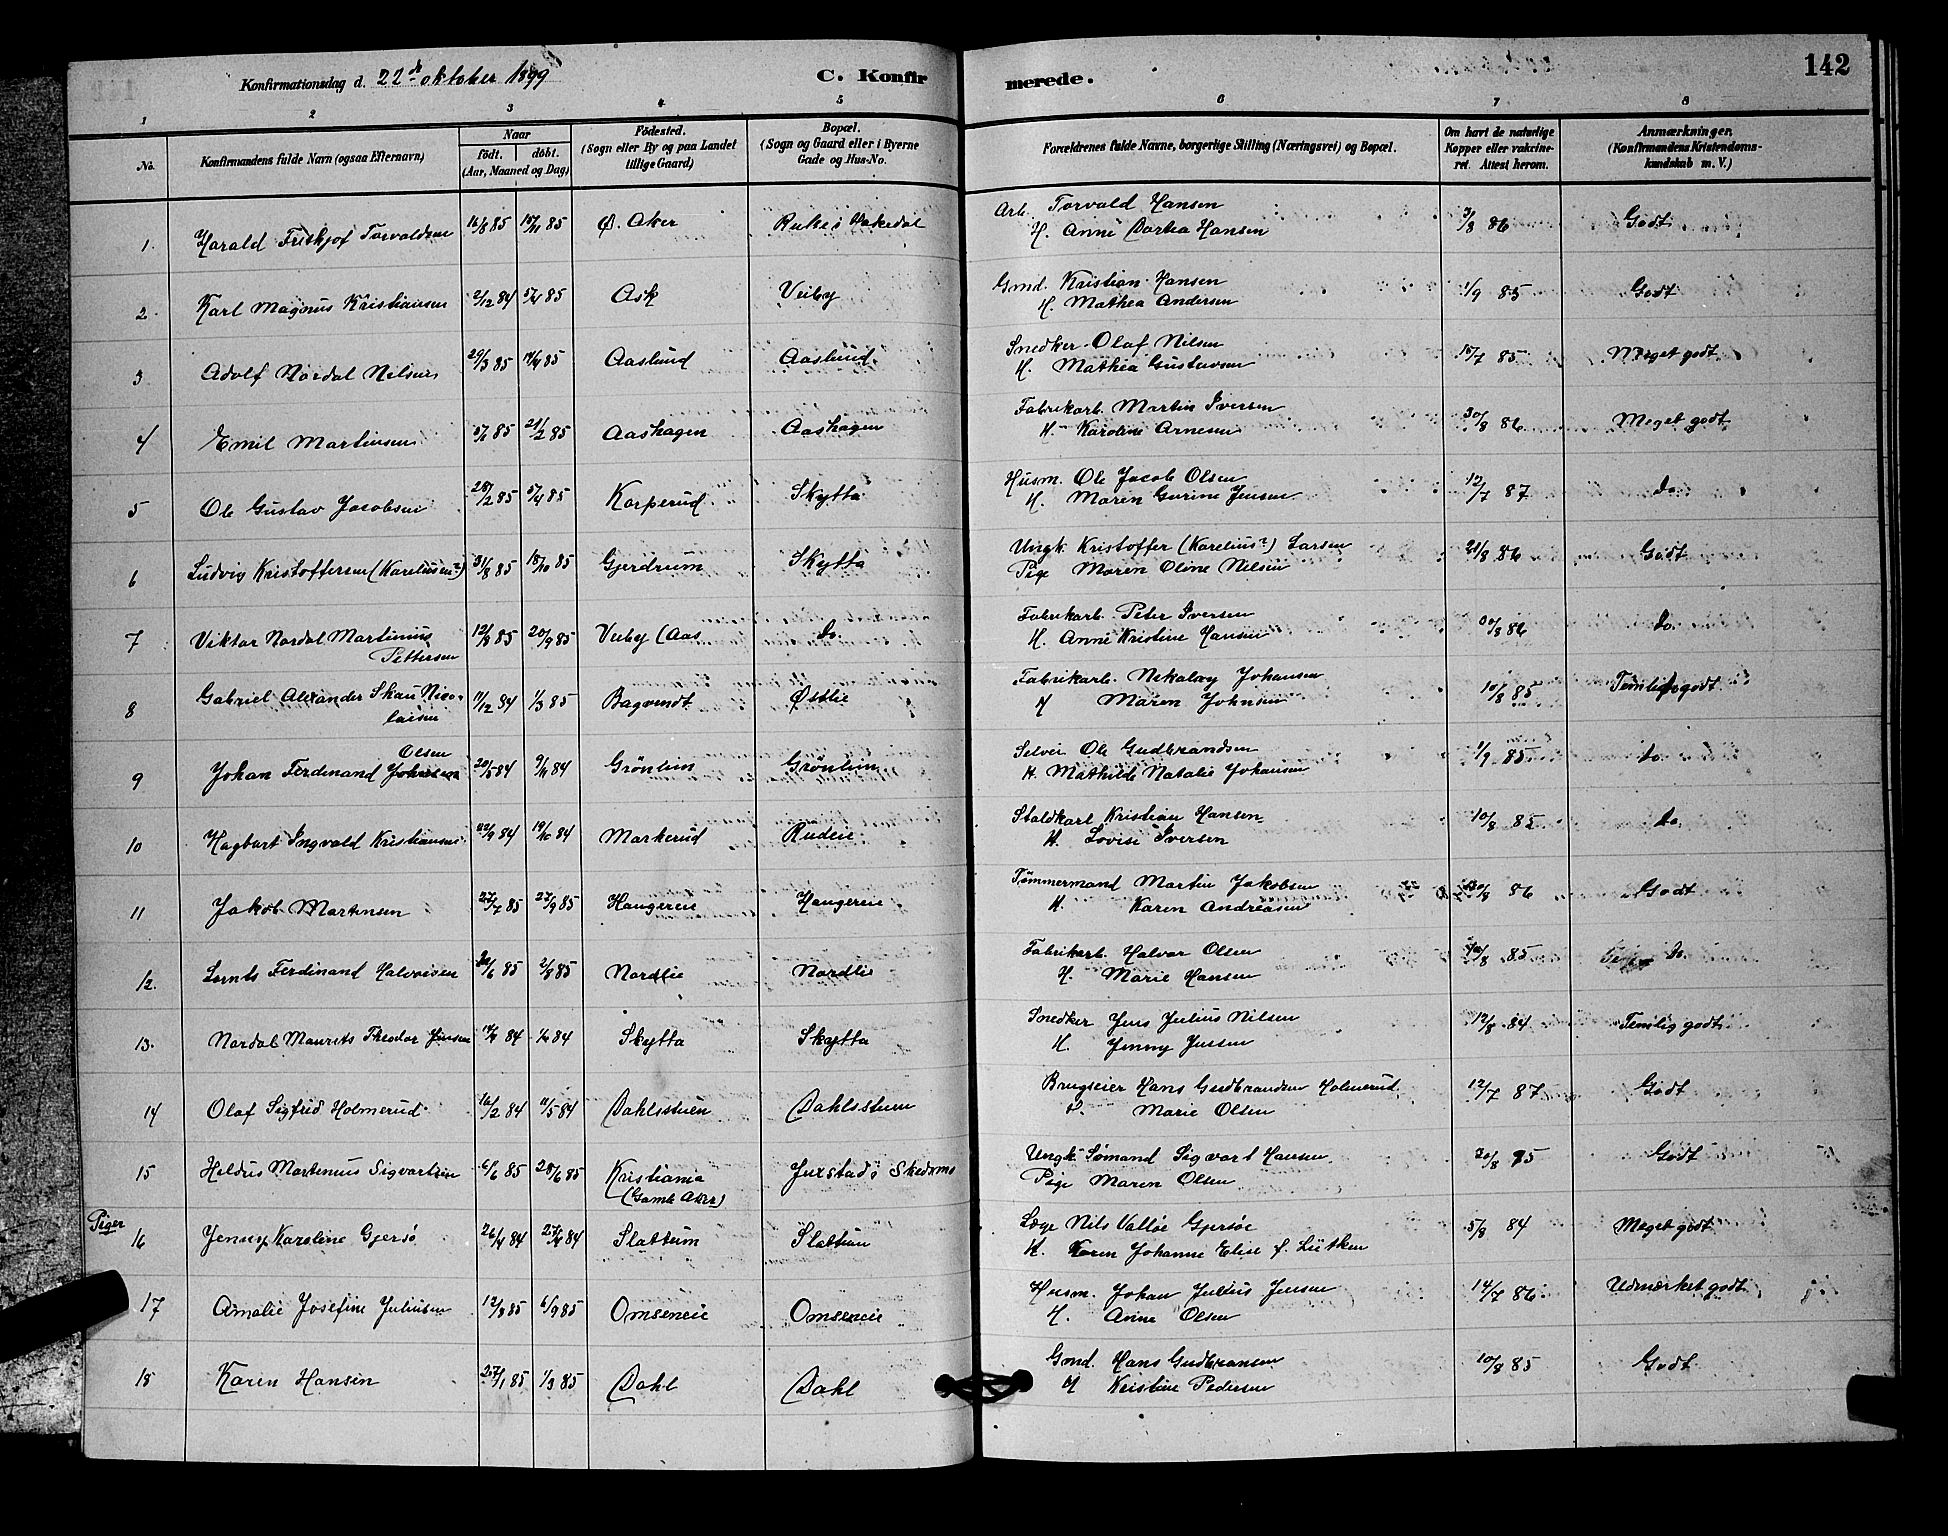 Konfirmationsdag d. 22de oktober 1899 C. Konfir merede. 142
1 2 3 4 5 6 7 8
No. Konfirmandens fulde Navn (ogsaa Efternavn) Naar født. døbt. (Aar, Maaned og Dag) Fødested. (Sogn eller By og paa Landet tillige Gaard) Bopæl. (Sogn og Gaard eller i Byerne Gade og Hus-No. Forældrenes fulde Navne, borgerlige Stilling (Næringsvei) og Bopæl. Om havt de naturlige Kopper eller vaccineret. Attest herom. Anmærkninger. (Konfirmandens Kristendomskundskab m. V.)
1. Harald Fritkjof Torvaldsen 16/8 85 15/11 85 Ø. Aker i Hakedal Arb. Torvald Hansen 3/8 86 Godt
H. Anne Dortea Hansen
2. Karl Magnus Kristiansen 2/12 84 5/4 85 Ask Veiby Gmd. Kristian Hansen 1/9 85 Godt
H. Mathea Andersen
3 Adolf Nordal Nilsen 29/3 85 85 Aaslund Aaslund Snedker Olaf Nilsen 15/7 85 Meget godt
H. Mathea Gustavsen
4 Emil Martinsen 85 21/2 85 Aashagen Aashagen Fabrikarb. Martin Iversen 30/8 86 Meget godt
H. Karoline Arnesen
5 Ole Gustav Jacobsen 28/2 85 5/4 85 Korperud Skytta Husm. Ole Jacob Olsen 12/7 87 do.
H. Maren Gurine Jensen
6 Ludvig Kristoffersen (Kareliusen?) 31/8 85 18/10 85 Gjerdrum Skytta Ungk. Kristoffer (Karelius?) Larsen 21/8 86 Godt
Pige Maren Oline Nilsen
7 Viktor Nordal Martinius Pettersen 12/8 85 20/9 85 Veiby (Aas do. Fabrikarb. Peter Iversen 86 do.
H. Anne Kristine Hansen
8 Gabriel Alexander Skau Nicolaisen 11/12 84 1/3 85 Bagvendt Østlie Fabrikarb. Nikolay Johansen 10/8 85 Temlig godt
H Maren Johnsen
9 Johan Ferdinand Olsen 20/5 84 9/11 84 Grønlien Grønlien Selvei Ole Gudbrandsen 1/9 85 do.
H. Mathilde Natalie Johansen
10 Hagbart Ingvald Kristiansen 22/9 84 19/10 84 Markerud Rudeie Staldkarl Kristian Hansen 10/8 85 do.
H. Lovise Iversen
11 Jakob Martinsen 27/7 85 27/9 85 Haugereie Haugereie Tømmermand Martin Jakobsen 86 Godt
H. Karen Andreasen
12. Lornts Ferdinand Halvorsen 85 2/8 85 Nordlie Nordlie Fabrikarb. Halvor Olsen 10/8 85 do.
H. Marie Hansen
13. Nordal Maurits Theodor Jensen 84 84 Skytta Skytta Snedker Jens Julius Nilsen 12/8 84 Temlig godt
H. Jenny Jensen
14 Olaf Sigfrid Holmerud 16/2 84 11/5 84 Dahlsstuen Dahlsstuen Brugseier Hans Gudbrandsen Holmerud 12/7 87 Godt
Marie Olsen
15 Heldus Martinius Sigvartsen 6/6 85 28/6 85 Kristiania (Gamle Aker) Jurstad i Skedsmo Ungk. Sømand Sigvart Hansen 20/8 95 Godt
Pige Maren Olsen
Piger
16 Jenny Karoline Gjersø 26/4 84 84 Slattum Slattum Læge Nils Valløe Gjersøe 5/8 84 Meget godt
H. Karen Johanne Elise f. Lütken
17 Amalie Josefine Juliusen 12/8 85 6/9 85 Omseneie Omseneie Husm. Johan Julius Jensen 14/7 86 Udmærket godt
H. Anne Olsen
18 Karen Hansen 27/1 85 1/3 85 Dahl Dahl Gmd. Hans Gudbransen 10/8 85 Godt
H Kristine Pedersen